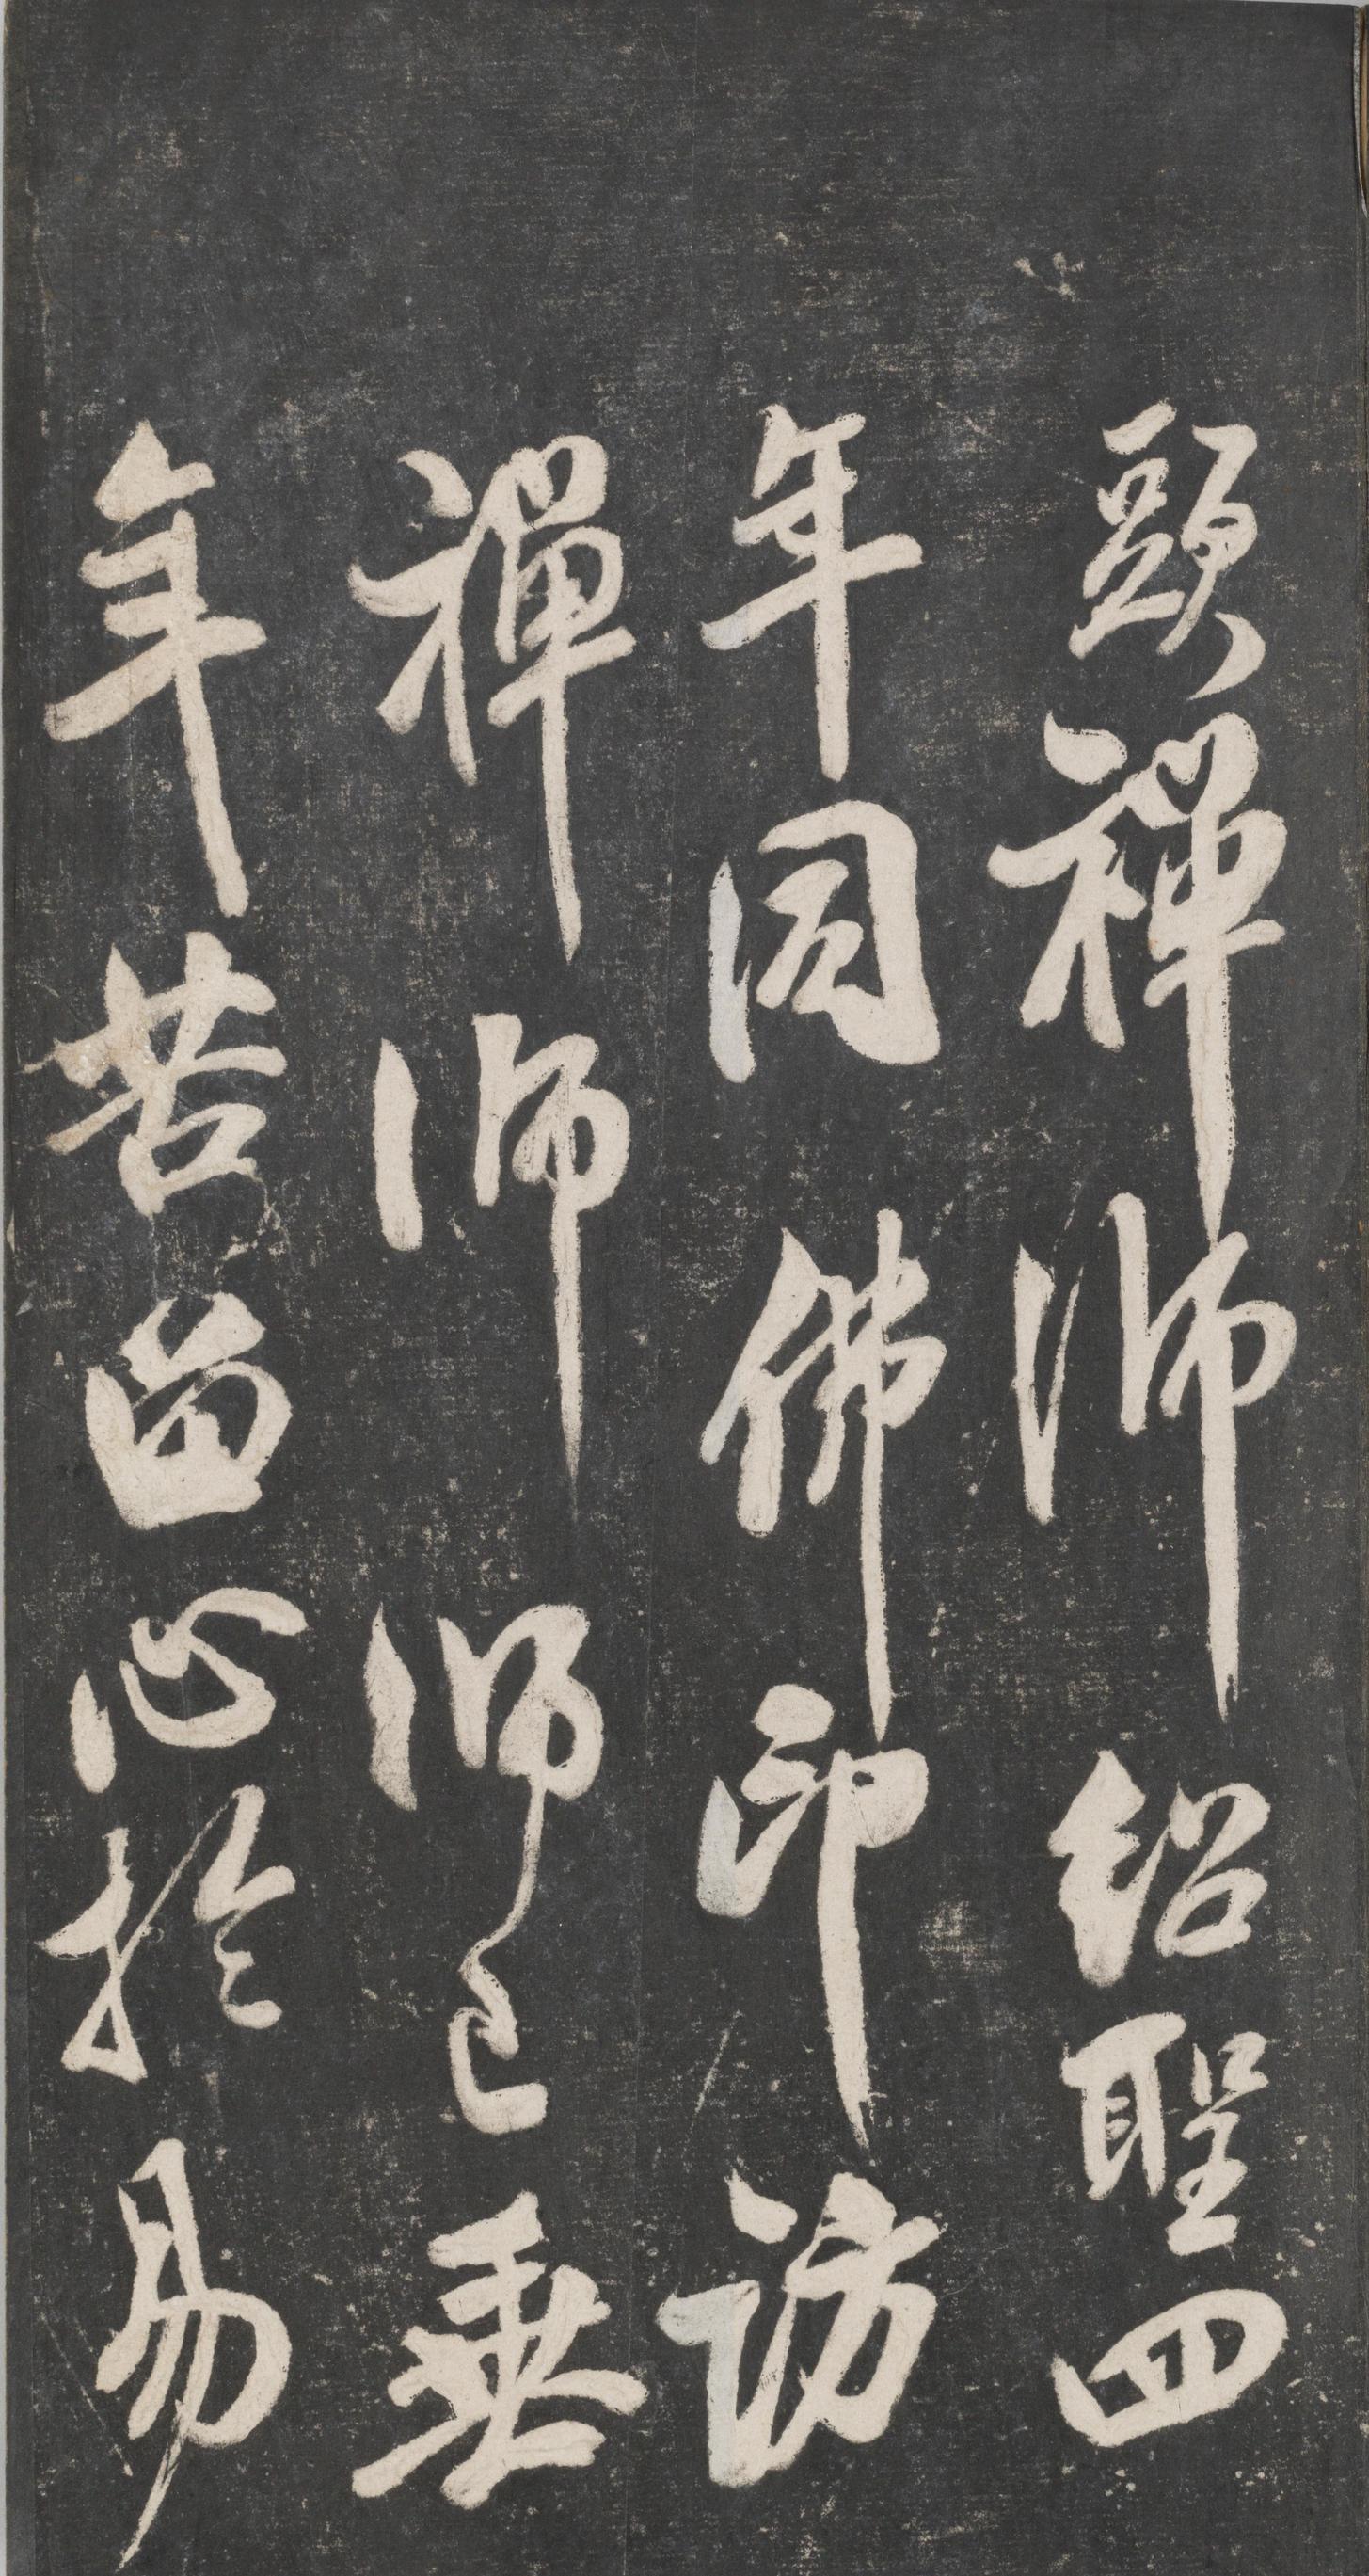 頭禪師紹聖四
年同佛印訪
禪師師已垂
年苦留心於易